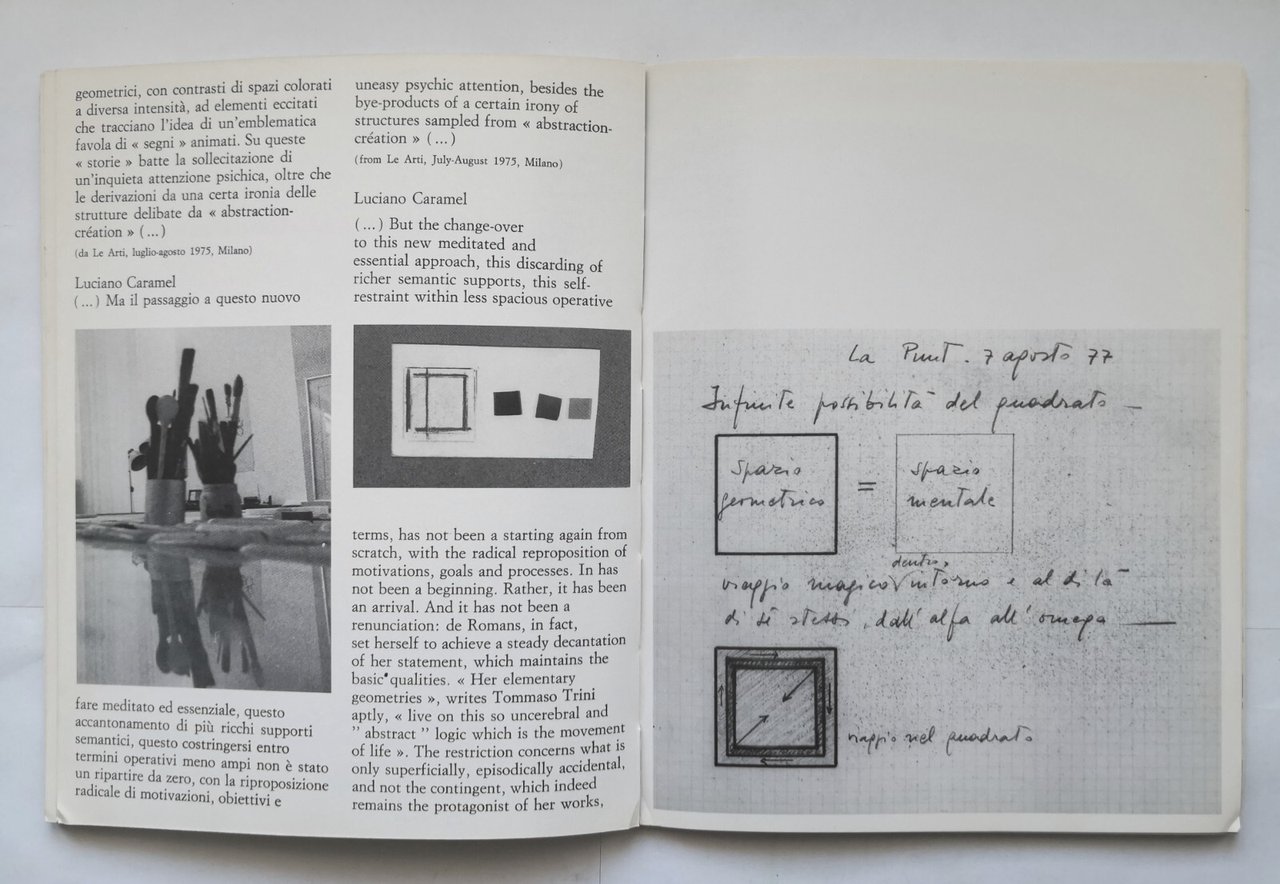 geometrici, con contrasti di spazi colorati
a diversa intensità, ad elementi eccitati
che tracciano l'idea di un'emblematica
favola di « segni » animati. Su queste
« storie » batte la sollecitazione di
un'inquieta attenzione psichica, oltre che
le derivazioni da una certa ironia delle
strutture delibate da « abstraction-
création » (...)
(da Le Arti, luglio-agosto 1975, Milano)
Luciano Caramel
(...) Ma il passaggio a questo nuovo
fare meditato ed essenziale, questo
accantonamento di più ricchi supporti
semantici, questo costringersi entro
termini operativi meno ampi non è stato
un ripartire da zero, con la riproposizione
radicale di motivazioni, obiettivi e
uneasy psychic attention, besides the
bye-products of a certain irony of
structures sampled from « abstraction-
création » (...)
(from Le Arti, July-August 1975, Milano)
Luciano Caramel
(...) But the change-over
to this new meditated and
essential approach, this discarding of
richer semantic supports, this self-
restraint within less spacious operative
terms, has not been a starting again from
scratch, with the radical reproposition of
motivations, goals and processes. In has
not been a beginning. Rather, it has been
an arrival. And it has not been a
renunciation: de Romans, in fact,
set herself to achieve a steady decantation
of her statement, which maintains the
basic qualities. « Her elementary
geometries », writes Tommaso Trini
aptly, « live on this so uncerebral and
" abstract " logic which is the movement
of life ». The restriction concerns what is
only superficially, episodically accidental,
and not the contingent, which indeed
remains the protagonist of her works,
La Punt. 7 agosto 77
Infinite possibilità del quadrato —
spazio
geometrico
=
spazio
mentale
dentro,
viaggio magico intorno e al di là
di sé stessi, dall'alfa all'omega —
viaggio nel quadrato